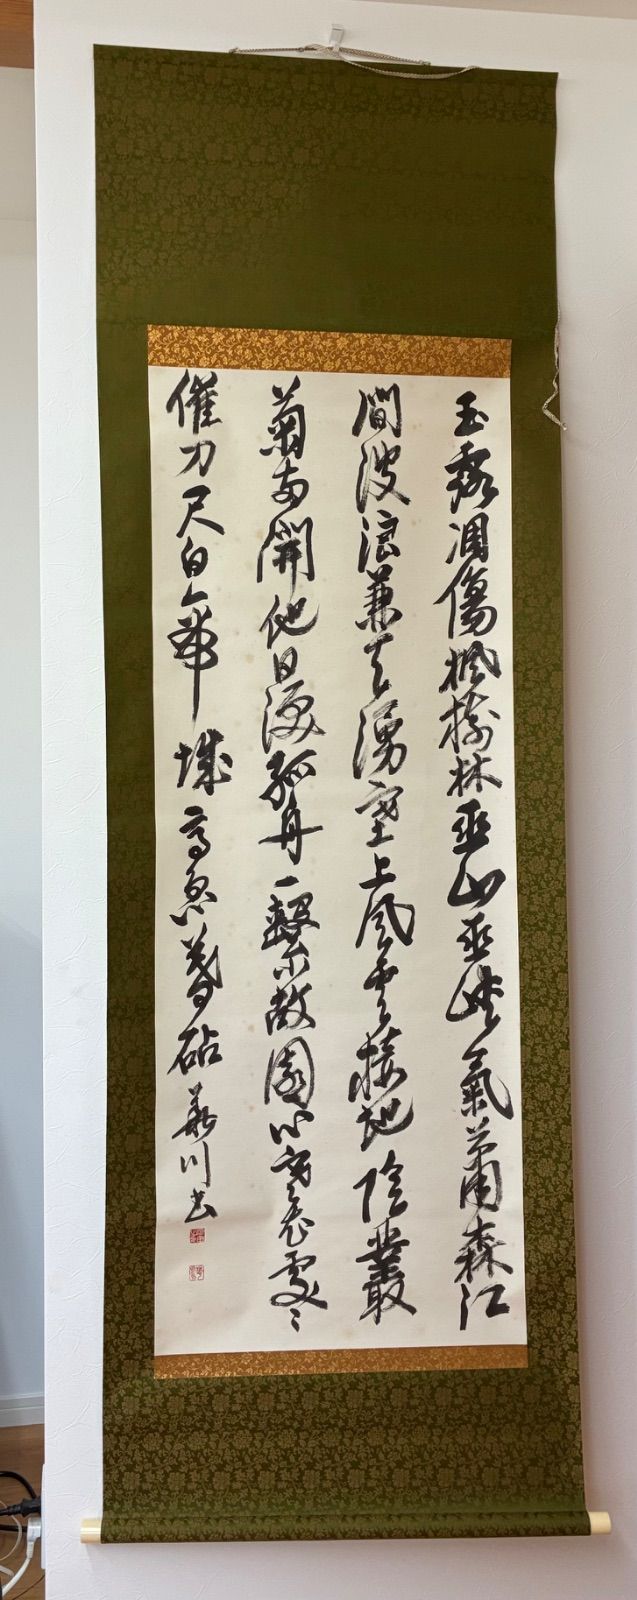 玉露凋傷楓樹林巫山巫峽氣蕭森江
間波浪兼天湧塞上風雲接地陰叢
菊兩開他日淚孤舟一繫故園心寒衣處々
催刀尺白帝城高急暮砧 川書